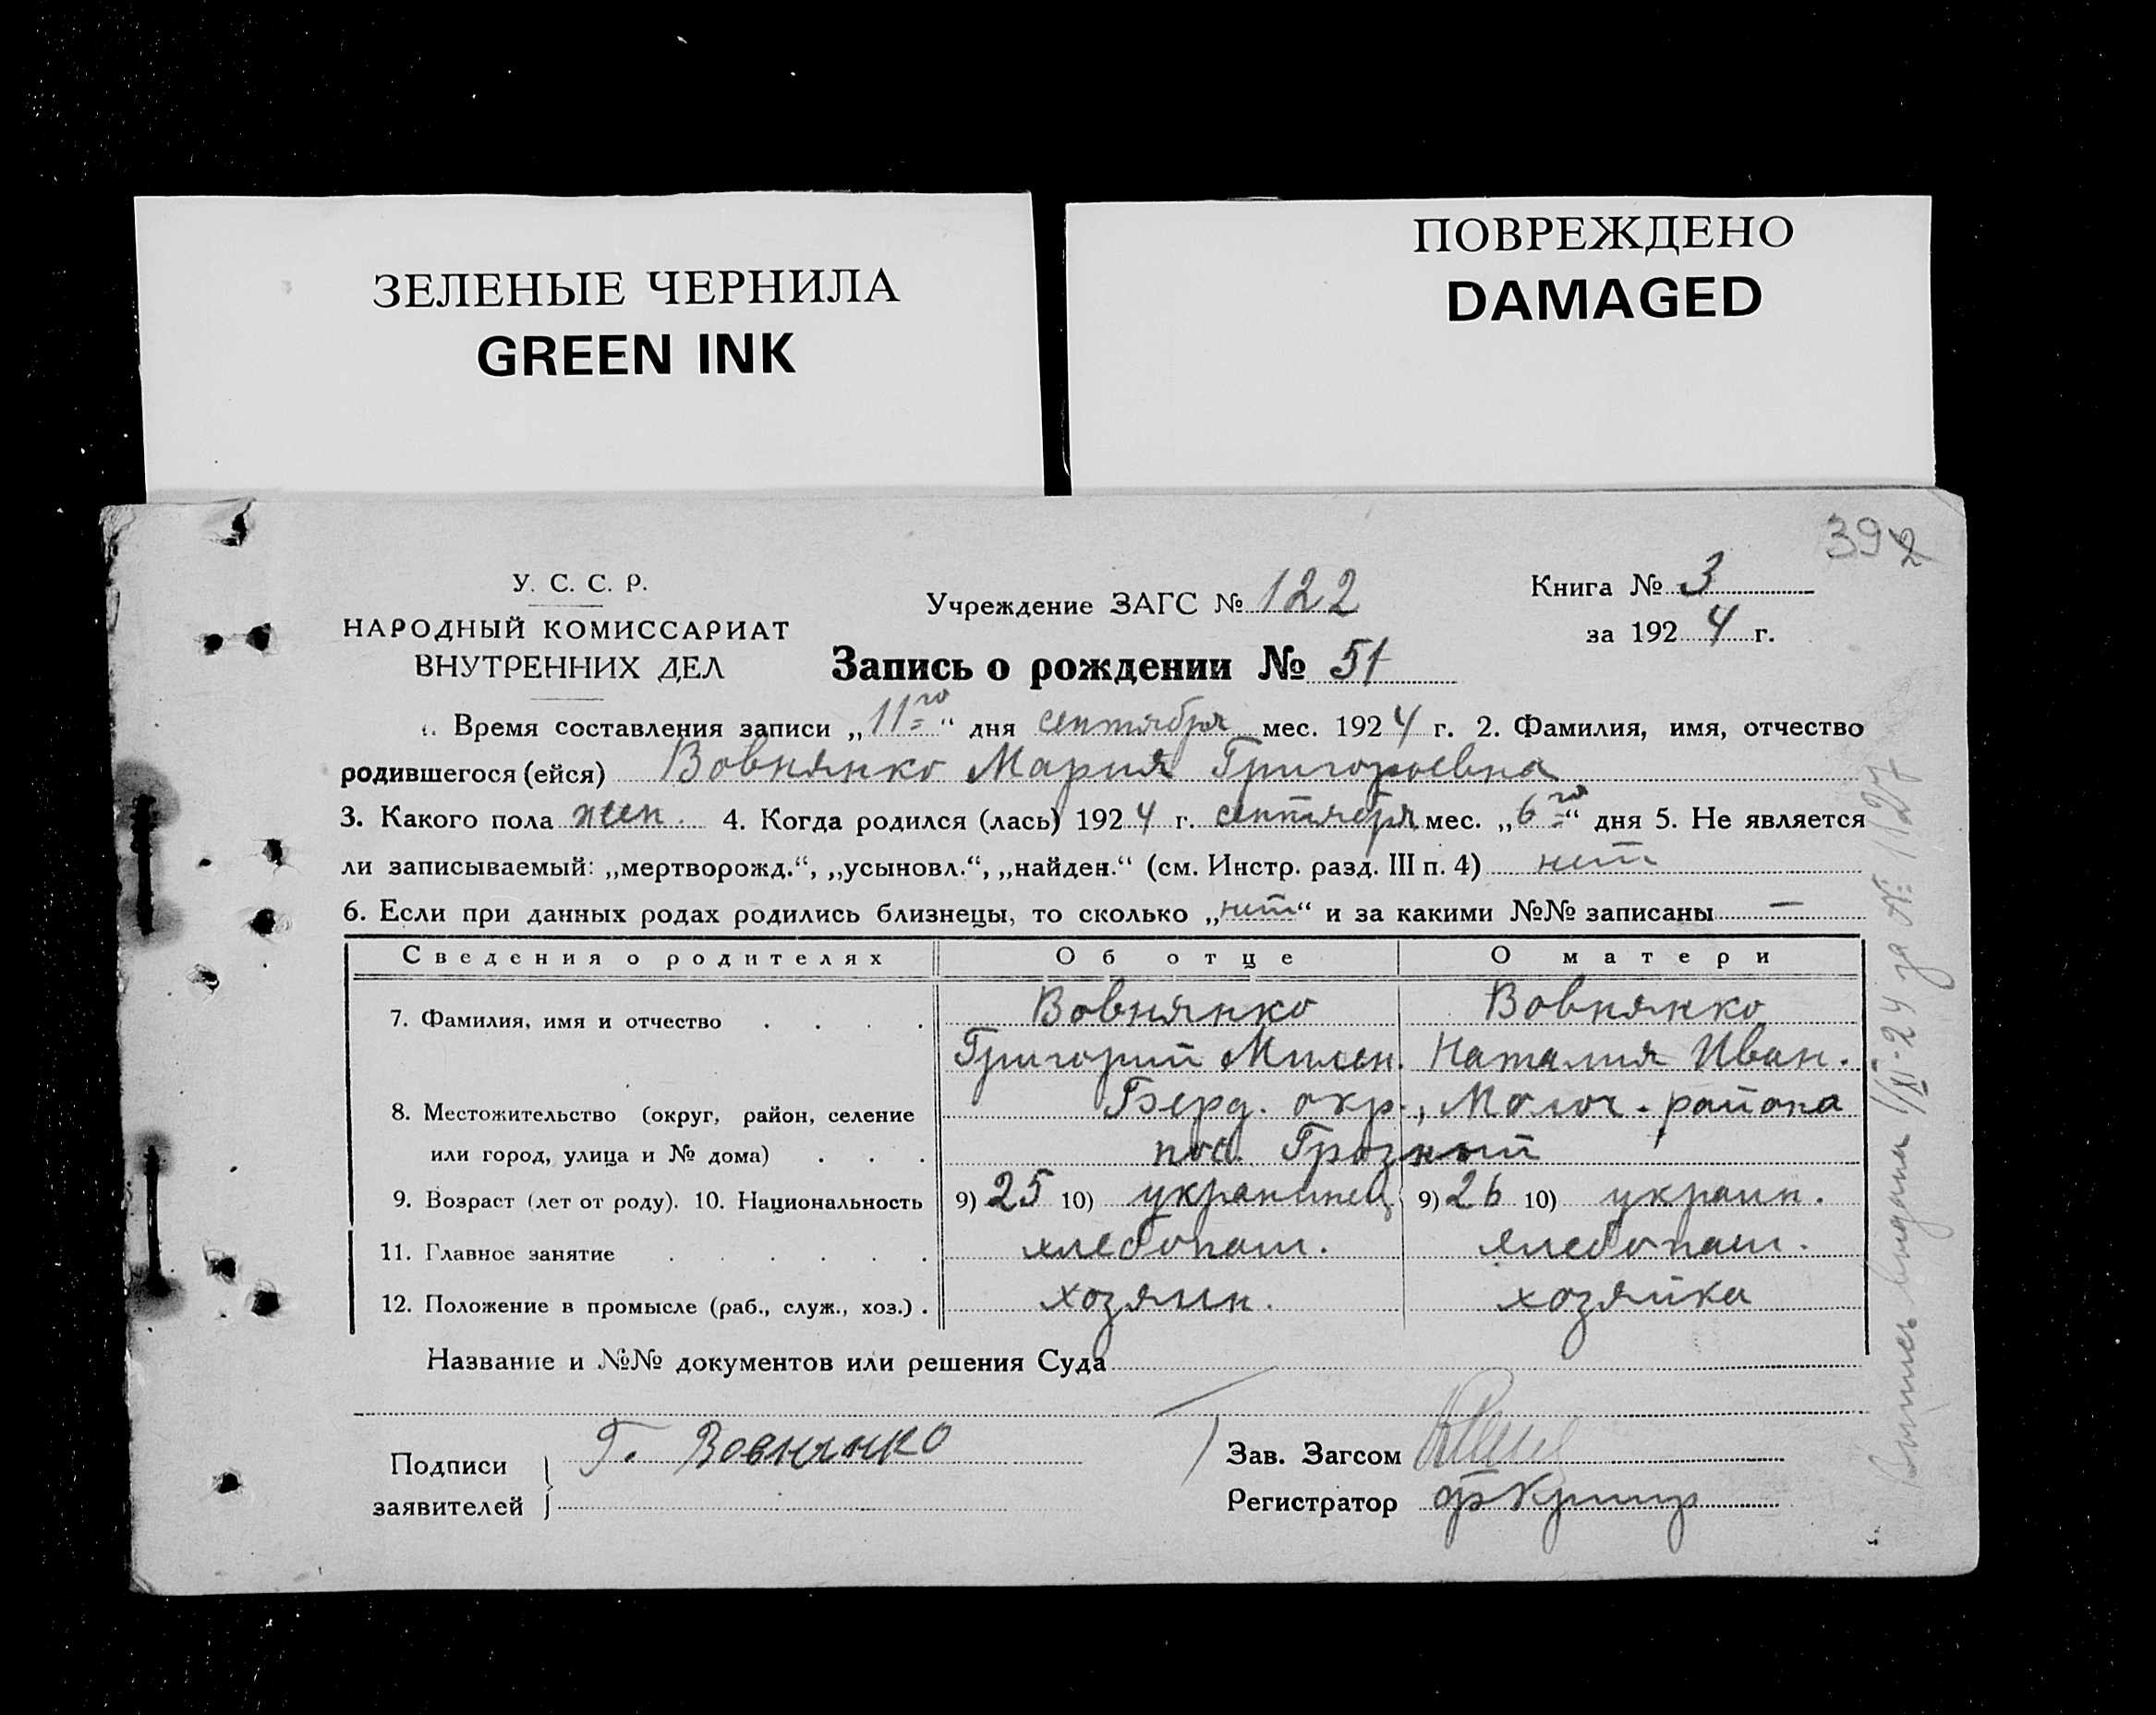 ЗЕЛЕНЫЕ ЧЕРНИЛА
GREEN INK
ПОВРЕЖДЕНО
DAMAGED
392
У. С. С. Р.
НАРОДНЫЙ КОМИССАРИАТ
ВНУТРЕННИХ ДЕЛ
Учреждение ЗАГС № 122
Книга № 3
за 1924 г.
Запись о рождении № 51
1. Время составления записи „11го“ дня сентября мес. 1924 г. 2. Фамилия, имя, отчество
родившегося (ейся) Вовнянко Мария Григорьевна
3. Какого пола жен. 4. Когда родился (лась) 1924 г. сентября мес. „6го“ дня 5. Не является
ли записываемый: „мертворожд.“, „усыновл.“, „найден.“ (см. Инстр. разд. III п. 4) нет
6. Если при данных родах родились близнецы, то сколько „нет“ и за какими №№ записаны —
Сведения о родителях Об отце О матери
7. Фамилия, имя и отчество . . . . Вовнянко Вовнянко
Григорий Наталия Иван.
8. Местожительство (округ, район, селение Берд. окр., Молоч. района
или город, улица и № дома) . . . пос. Грозный
9. Возраст (лет от роду). 10. Национальность 9) 25 10) украинец 9) 26 10) украин.
11. Главное занятие . . . . . . хлебопаш. хлебопаш.
12. Положение в промысле (раб., служ., хоз.) . хозяин. хозяйка
Название и №№ документов или решения Суда
Подписи
заявителей
Г. Вовнянко
Зав. Загсом
Регистратор
Выпись выдана 1/XI-24 за № 1127